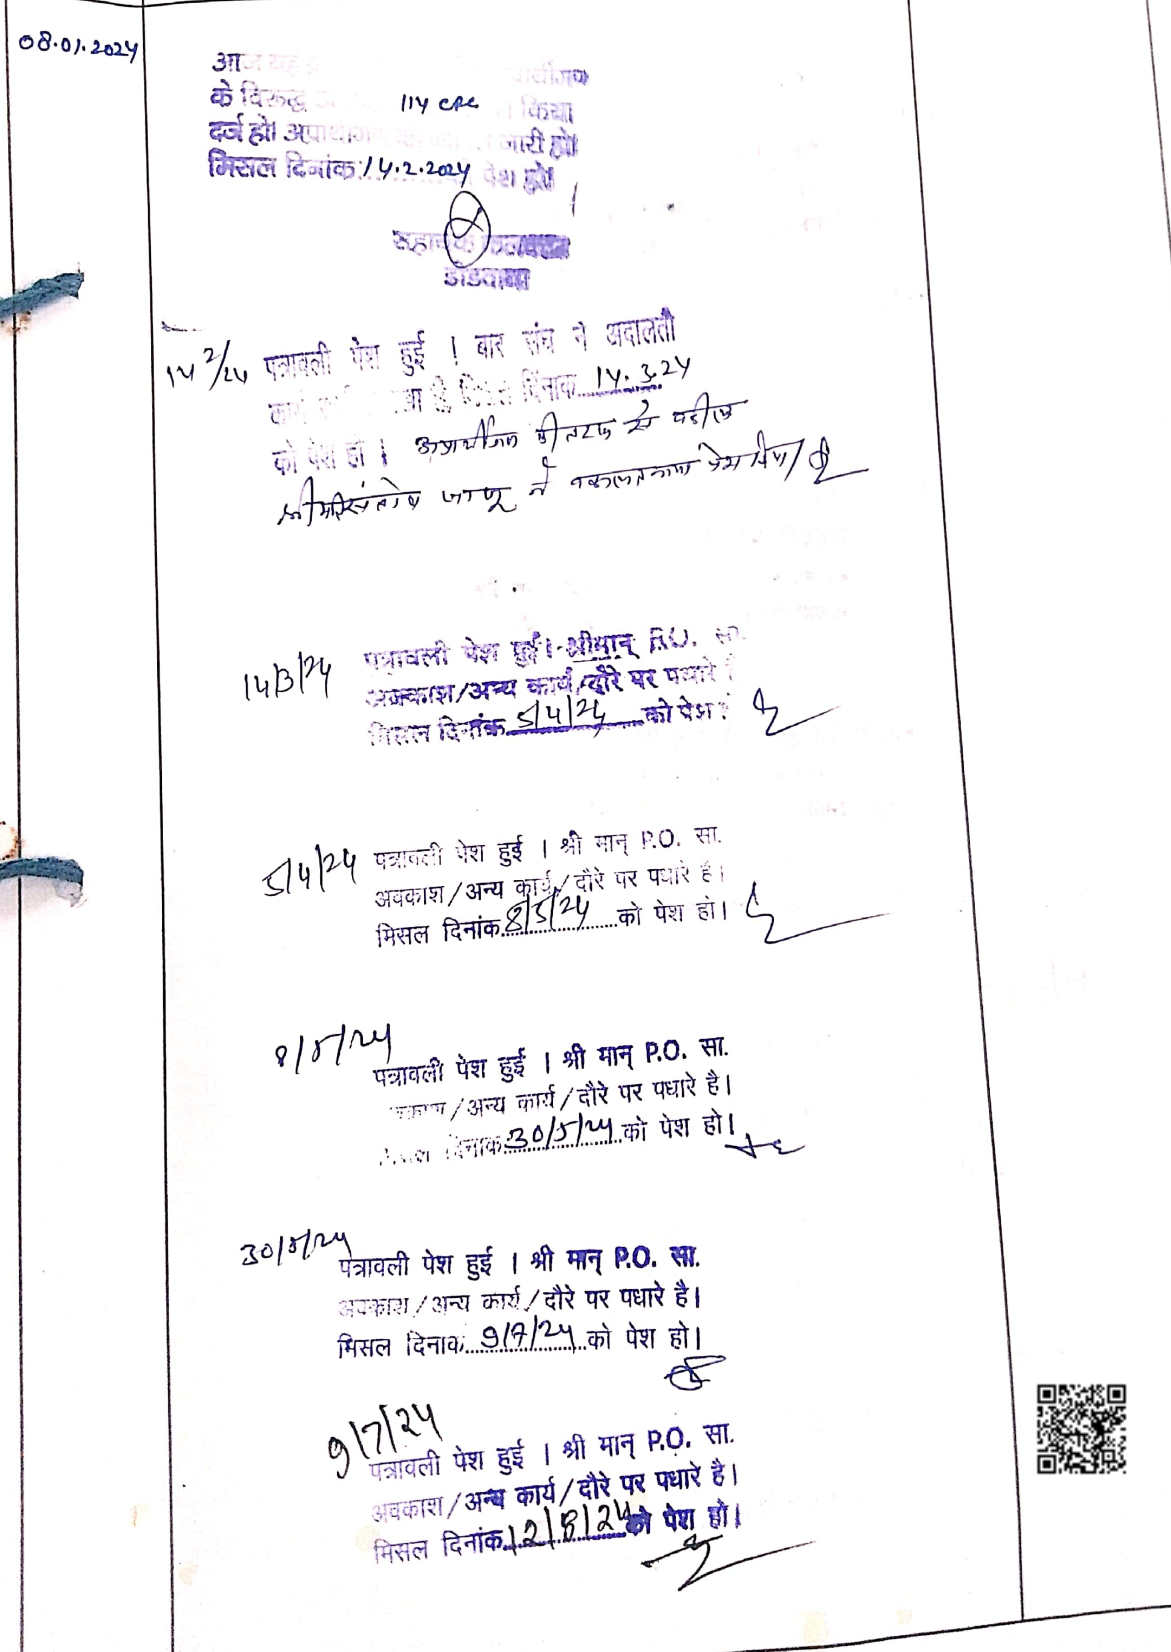 08.01.2024
आज यह
के विरूद्ध 114 CPC किया
दर्ज हो। जारी हो।
मिसल दिनांक 14.2.2024 पेश हो।
सहायक कलक्टर
डीडवाना
14 2/24 पत्रावली पेश हुई । बार संघ ने अदालती
दिनांक 14.3.24
को पेश हो । की तरफ से वकील
श्री ने वकालतनामा पेश किया।
14/3/24 पत्रावली पेश हुई। श्रीमान् P.O. सा.
अवकाश/अन्य कार्य/दौरे पर पधारे है
मिसल दिनांक 5/4/24 को पेश
5/4/24 पत्रावली पेश हुई । श्री मान् P.O. सा.
अवकाश/अन्य कार्य/दौरे पर पधारे है।
मिसल दिनांक 8/5/24 को पेश हो।
8/5/24
पत्रावली पेश हुई । श्री मान् P.O. सा.
/अन्य कार्य/दौरे पर पधारे है।
दिनांक 30/5/24 को पेश हो।
30/5/24 पत्रावली पेश हुई । श्री मान् P.O. सा.
अवकाश/अन्य कार्य/दौरे पर पधारे है।
मिसल दिनांक 9/7/24 को पेश हो।
9/7/24
पत्रावली पेश हुई । श्री मान् P.O. सा.
अवकाश/अन्य कार्य/दौरे पर पधारे है।
मिसल दिनांक 12/8/24 को पेश हो।